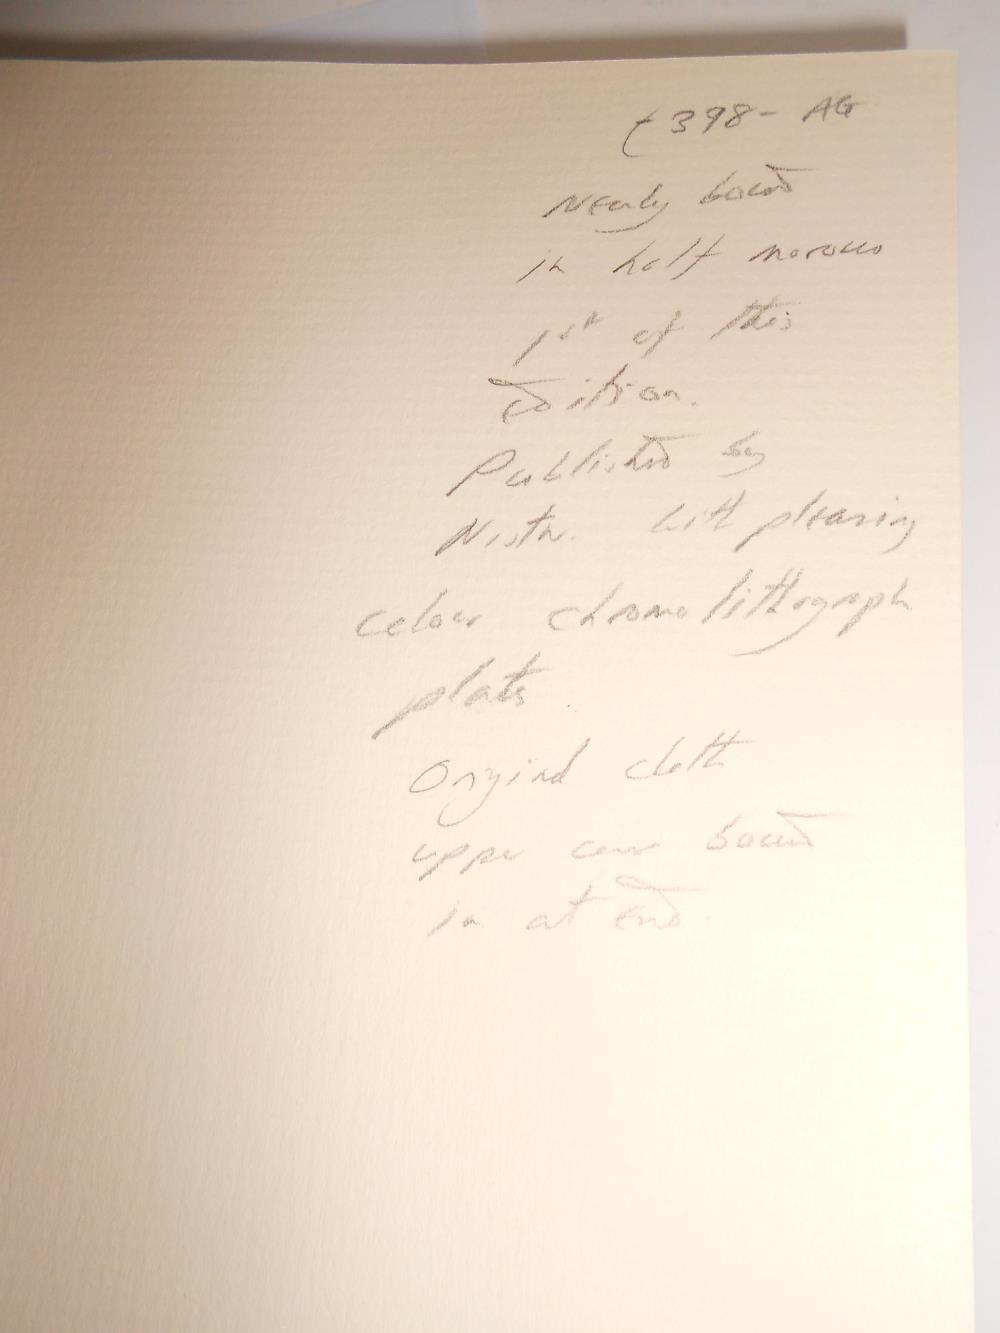 £398- AG
Newly bound
in half morocco
1st of this
Edition.
Published by
Nister. With pleasing
colour chromolithograph
plates
Original cloth
upper cover bound
in at End.